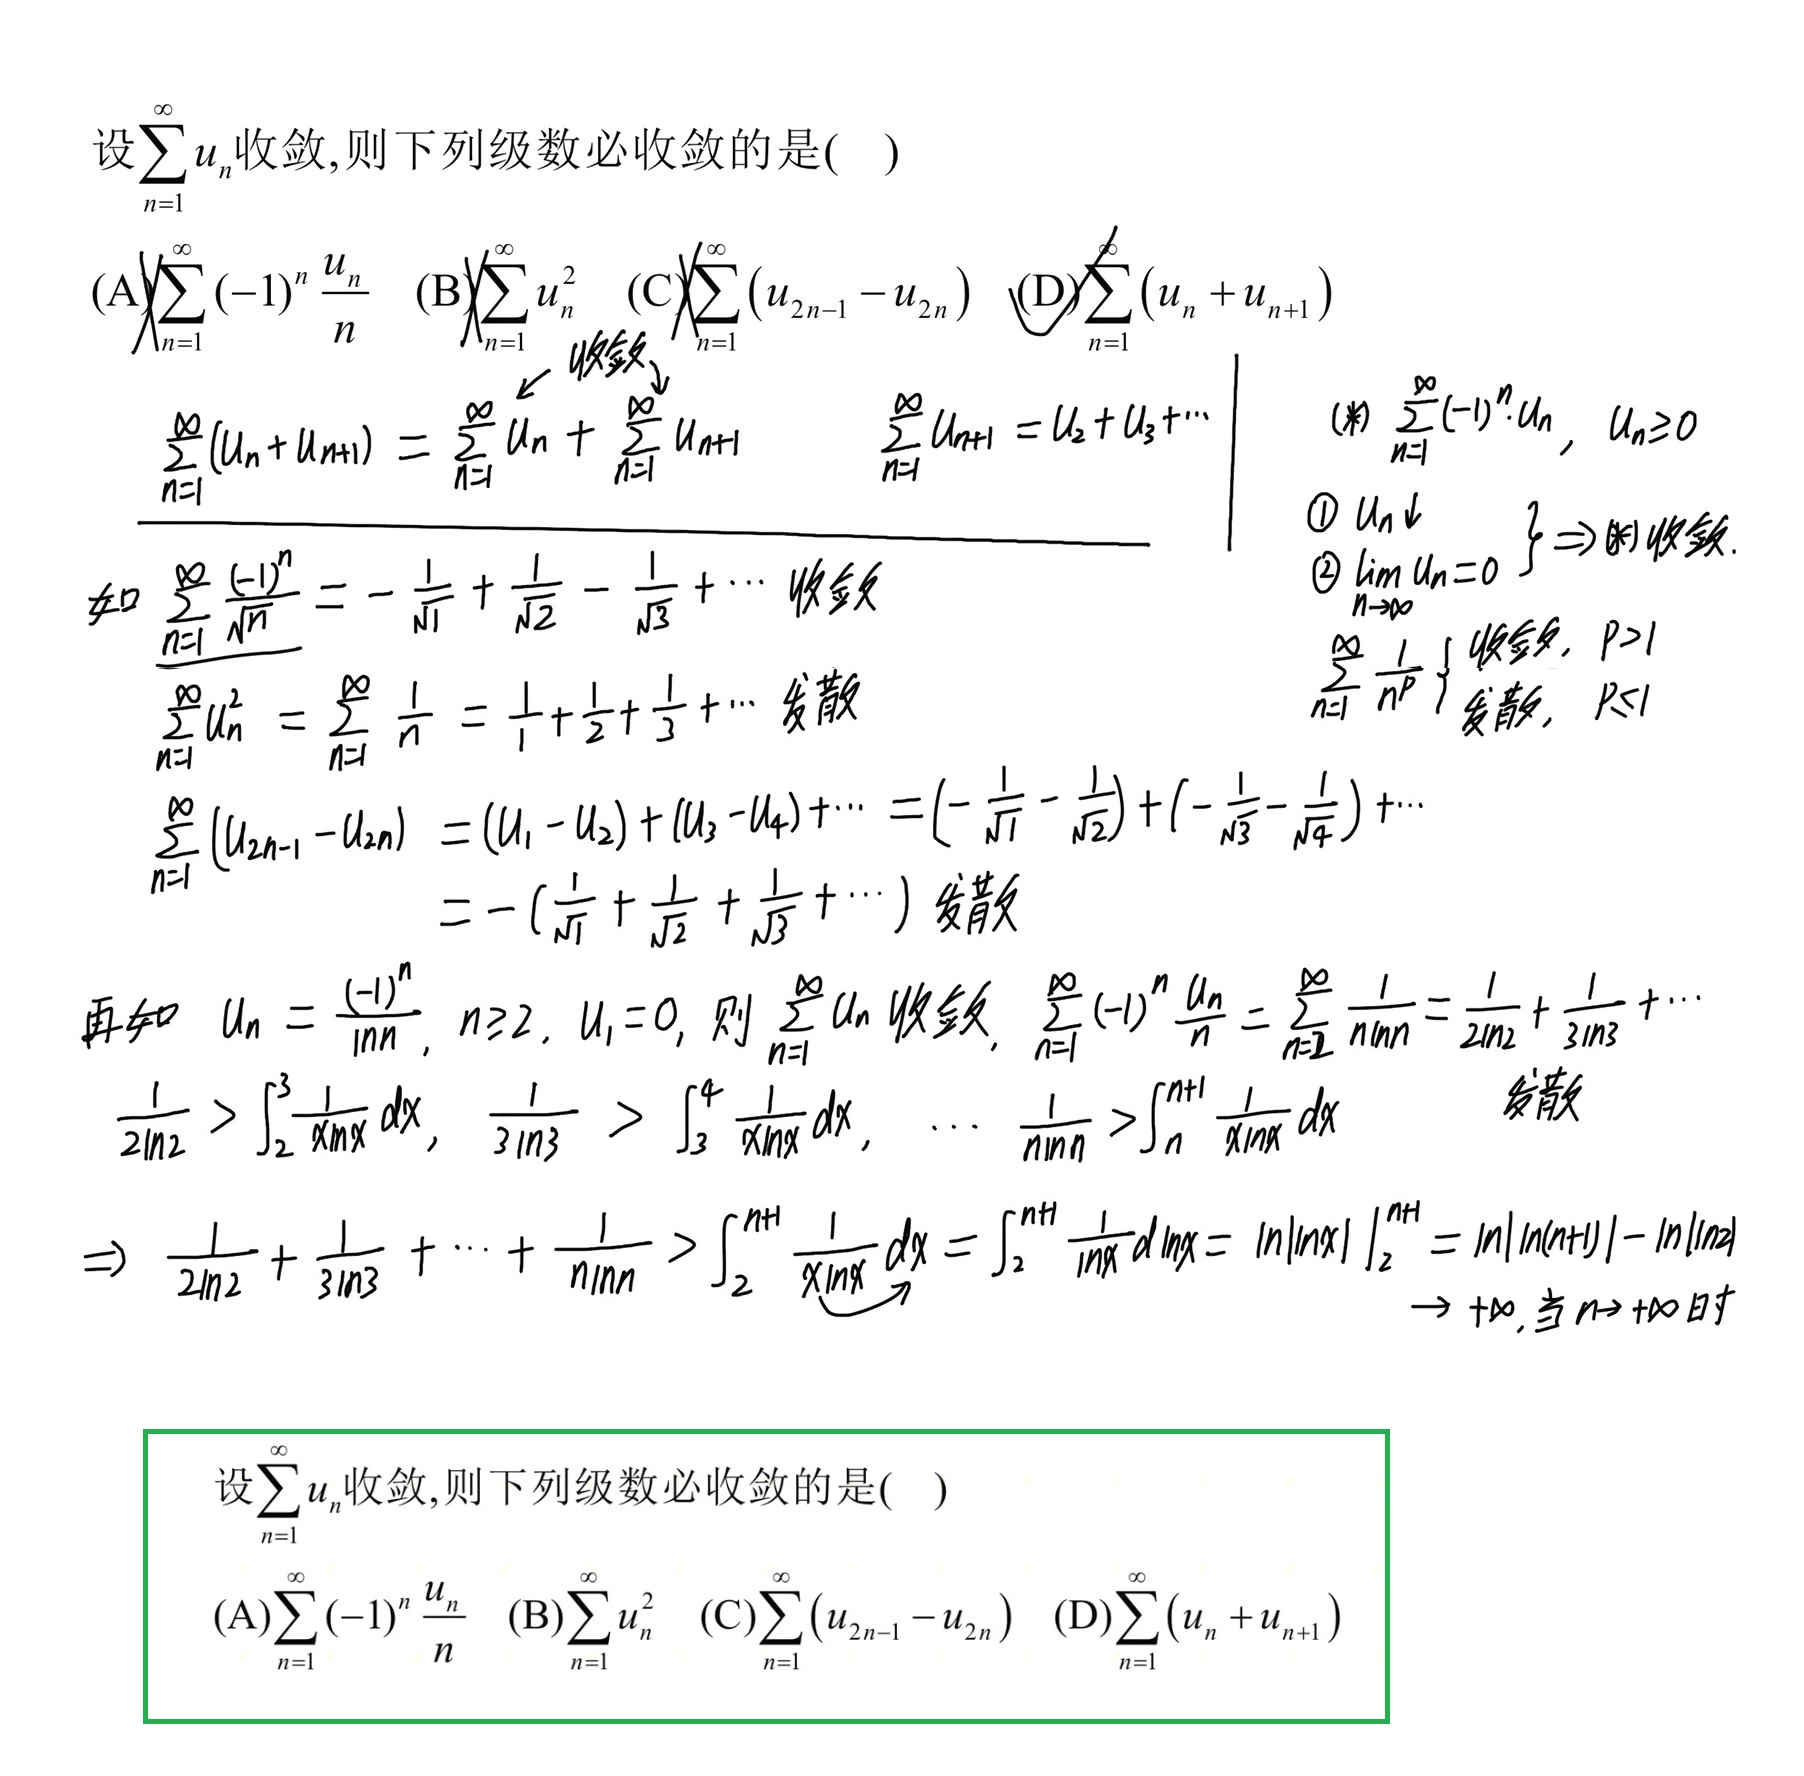 设∑_{n=1}^{∞} u_n收敛,则下列级数必收敛的是(   )
(A)∑_{n=1}^{∞} (−1)^n u_n/n   (B)∑_{n=1}^{∞} u_n^2   (C)∑_{n=1}^{∞} (u_{2n−1} − u_{2n})   (D)∑_{n=1}^{∞} (u_n + u_{n+1})
收敛
∑_{n=1}^{∞} (u_n + u_{n+1}) = ∑_{n=1}^{∞} u_n + ∑_{n=1}^{∞} u_{n+1}   ∑_{n=1}^{∞} u_{n+1} = u_2 + u_3 + ⋯
(※) ∑_{n=1}^{∞} (−1)^n·u_n, u_n ≥ 0
① u_n↓
② lim_{n→∞} u_n = 0 } ⇒ (※)收敛.
∑_{n=1}^{∞} 1/n^p { 收敛, p>1
发散, p≤1
如 ∑_{n=1}^{∞} (−1)^n/√n = −1/√1 + 1/√2 − 1/√3 + ⋯ 收敛
∑_{n=1}^{∞} u_n^2 = ∑_{n=1}^{∞} 1/n = 1/1 + 1/2 + 1/3 + ⋯ 发散
∑_{n=1}^{∞} (u_{2n−1} − u_{2n}) = (u_1 − u_2) + (u_3 − u_4) + ⋯ = (−1/√1 − 1/√2) + (−1/√3 − 1/√4) + ⋯
= −(1/√1 + 1/√2 + 1/√3 + ⋯) 发散
再如 u_n = (−1)^n/lnn, n≥2, u_1=0, 则 ∑_{n=1}^{∞} u_n 收敛, ∑_{n=1}^{∞} (−1)^n u_n/n = ∑_{n=2}^{∞} 1/(nlnn) = 1/(2ln2) + 1/(3ln3) + ⋯
发散
1/(2ln2) > ∫_2^3 1/(xlnx) dx, 1/(3ln3) > ∫_3^4 1/(xlnx) dx, ⋯ 1/(nlnn) > ∫_n^{n+1} 1/(xlnx) dx
⇒ 1/(2ln2) + 1/(3ln3) + ⋯ + 1/(nlnn) > ∫_2^{n+1} 1/(xlnx) dx = ∫_2^{n+1} 1/lnx dlnx = ln|lnx| |_2^{n+1} = ln|ln(n+1)| − ln|ln2|
→ +∞, 当 n→+∞ 时
设∑_{n=1}^{∞} u_n收敛,则下列级数必收敛的是(   )
(A)∑_{n=1}^{∞} (−1)^n u_n/n   (B)∑_{n=1}^{∞} u_n^2   (C)∑_{n=1}^{∞} (u_{2n−1} − u_{2n})   (D)∑_{n=1}^{∞} (u_n + u_{n+1})